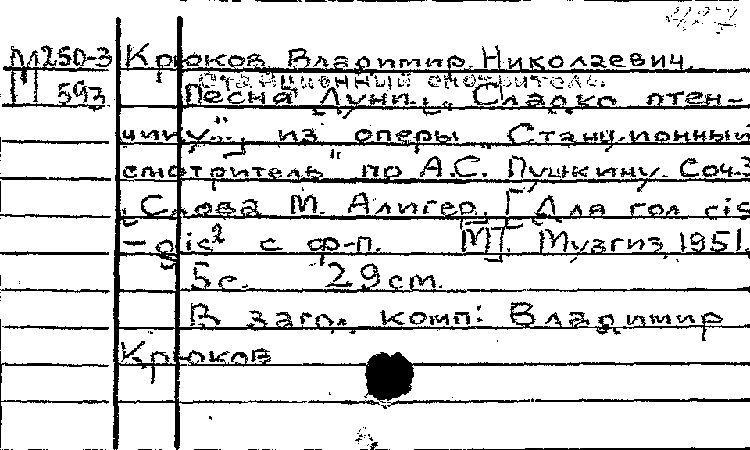 427
М250-3 Крюков, Владимир Николаевич.
Станционный смотритель.
П 593 Песня Дуни „Сладко птен-
чику...", из оперы „Станционный
смотритель" по А.С. Пушкину. Соч.3
Слова М. Алигер. [Для гол. cis
– gis² с ф-п. М]. Музгиз, 1951.
5 с. 29 cm.
В загл. комп: Владимир
Крюков